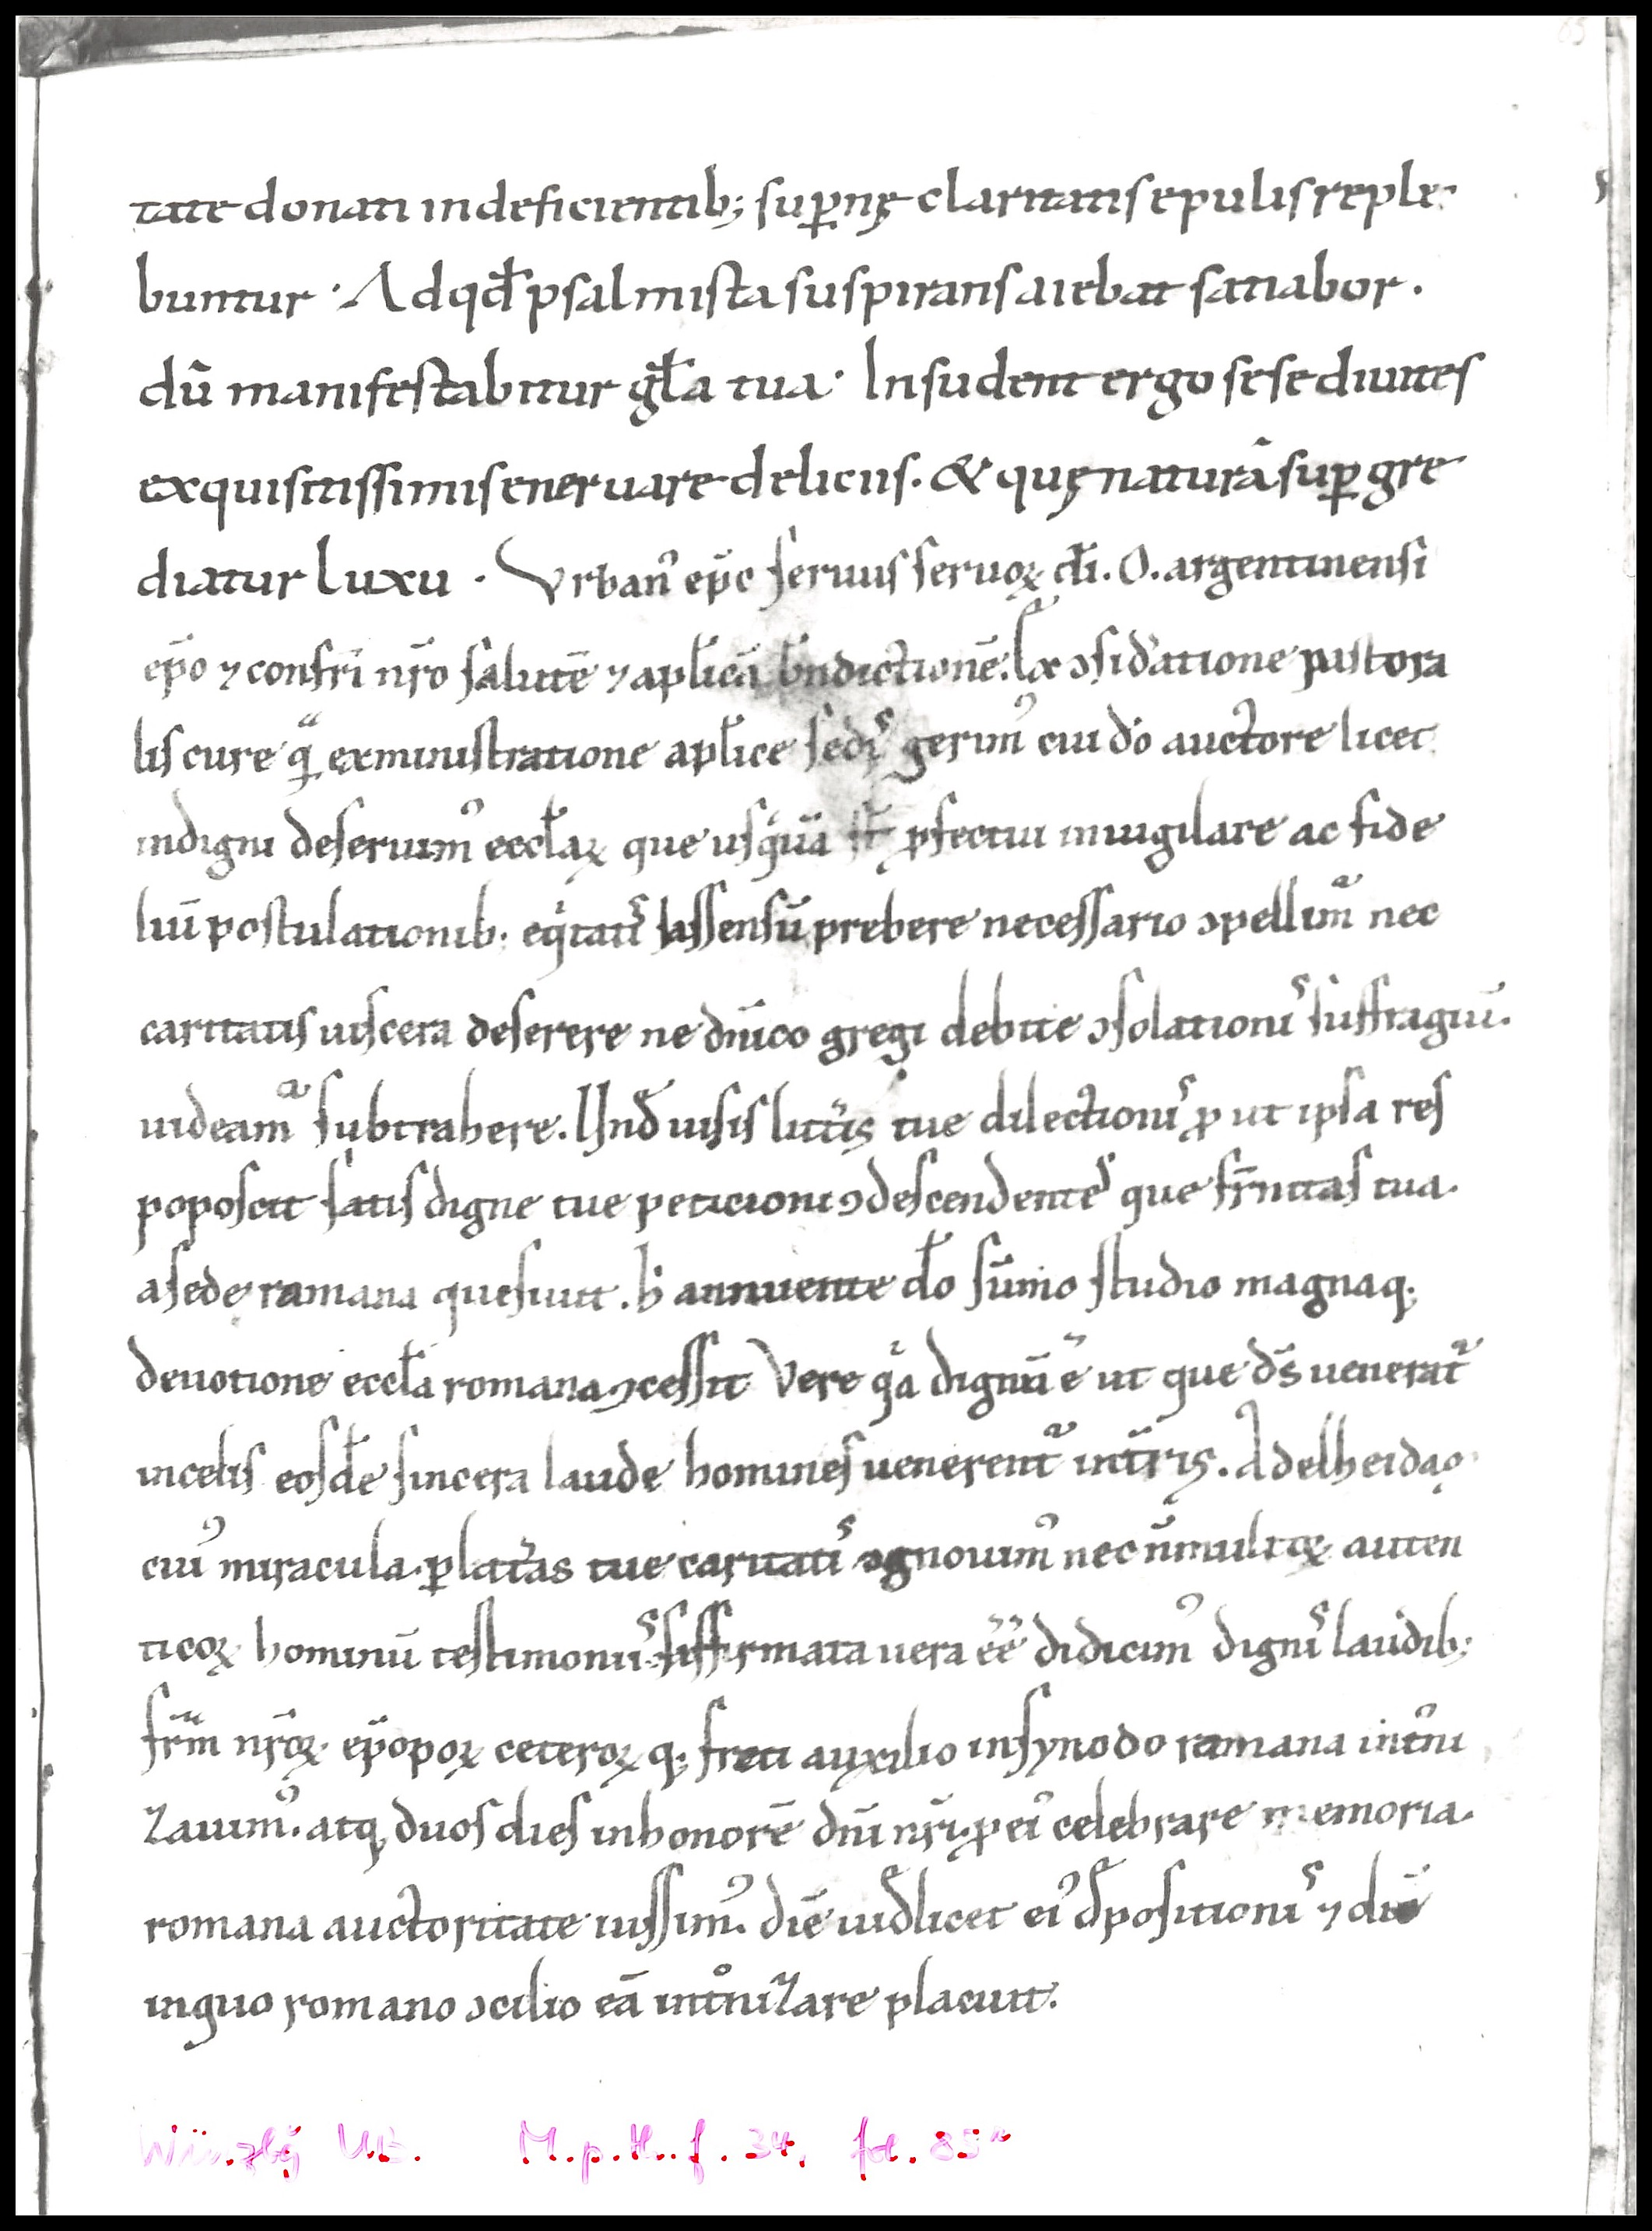 tate donati indeficientib; sup̱nę claritatis epulis reple
buntur · Ad qđ psalmista suspirans aiebat satiabor .
dū manifestabitur gła tua · Insudent ergo sese diuites
exquisitissimis eneruare deliciis . & quę naturā sup̱ gre
diatur luxu . Vrbanꝰ ep̄c seruus seruoꝝ di̅ . O . argentinensi
ep̄o ⁊ confri̅ nr̄o salutē ⁊ apl̅icā bn̅dictionē . Ex ɔsid̓atione pastora
lis cure qͣ̄ ex ministratione apl̅ice sediˢ gerimꝰ cui dō auctore licet
indigni deseruimꝰ eccl̅aꝝ que usq̓ua ꝓfectui inuigilare ac fide
liū postulationib. eq̓tatiˢ assensū prebere necessario ɔpellimᷓ nec
caritatis uiscera deserere ne dn̄ico gregi debite ɔsolationiˢ suffragiū .
uideamᷓ subtrahere . Vnđ uisis litt̓is tue dilectioniˢ ꝓ ut ipsa res
poposcit satis digne tue peticioni ɔdescendenteˢ que fr̄nitas tua .
a sede romana quesiuit . h̓ annuente do̅ sūmo studio magnaq;
deuotione eccl̅a romana ɔcessit Vere qͥa dignū ē ut que ds̄ ueneratᷓ
in celis eosđe sincera laude homines uenerentᷓ in t̓ris . Adelheida
cuiꝰ miracula . ꝑ latͣas tue caritatiˢ ɔgnouimꝰ nec n̄ multoꝝ auten
ticoꝝ hominū testimoniiˢ affirmata uera ēē didicimꝰ digniˢ laudib;
fr̄m nr̄oꝝ . ep̄opoꝝ ceteroꝝ q; freti auxilio in synodo romana intͦni
zauimꝰ . atq; duos dies in honorē dn̄i nr̄i . ꝓ eiꝰ celebrare memoria .
romana auctoritate iussimꝰ . diē uidͤlicet eiꝰ dͤpositioniˢ ⁊ diē
in quo romano ɔcilio eā intͦnizare placuit .
Würzbg UB. M.p.th.f. 34, fol. 85ʳ